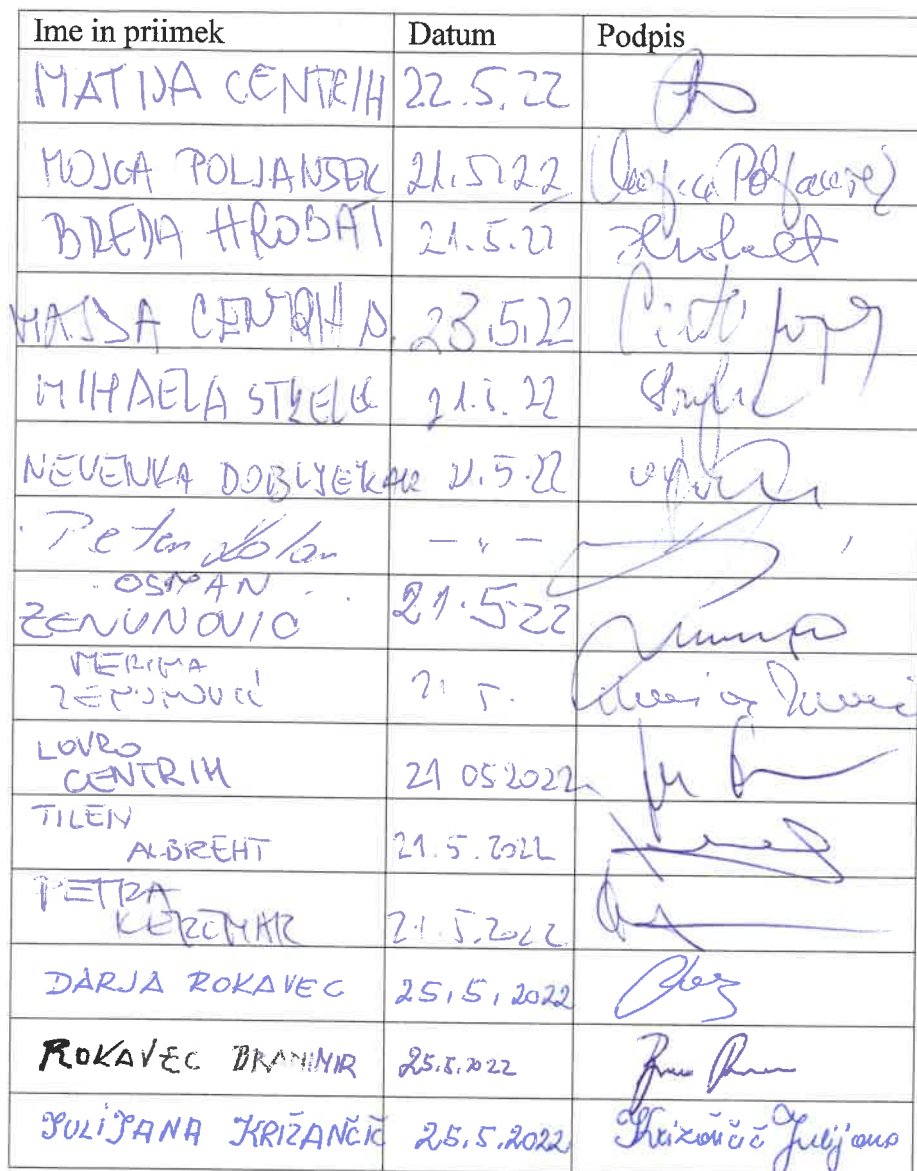 Ime in priimek Datum Podpis
MATIJA CENTRIH 22.5.22
MOJCA POLJANŠEK 21.5.22 Mojca Poljanšek
BREDA HROBAT 21.5.22 Hrobat
MAJDA CENTRIH D. 23.5.22
MIHAELA STRELEC 21.5.22
NEVENKA DOBLJEKAR 21.5.22
Peter - " -
OSMAN
ZENUNOVIĆ 21.5.22
MERIMA
ZENUNOVIĆ 21. 5.
LOVRO
CENTRIH 21 05 2022
TILEN
ALBREHT 21.5.2022
PETRA
21.5.2022
DARJA ROKAVEC 25.5.2022
ROKAVEC BRANIMIR 25.5.2022
JULIJANA KRIŽANČIČ 25.5.2022 Križančič Julijana